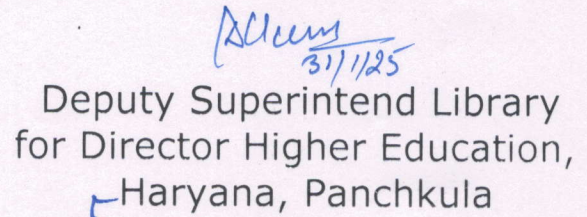 31/1/25
Deputy Superintend Library
for Director Higher Education,
Haryana, Panchkula